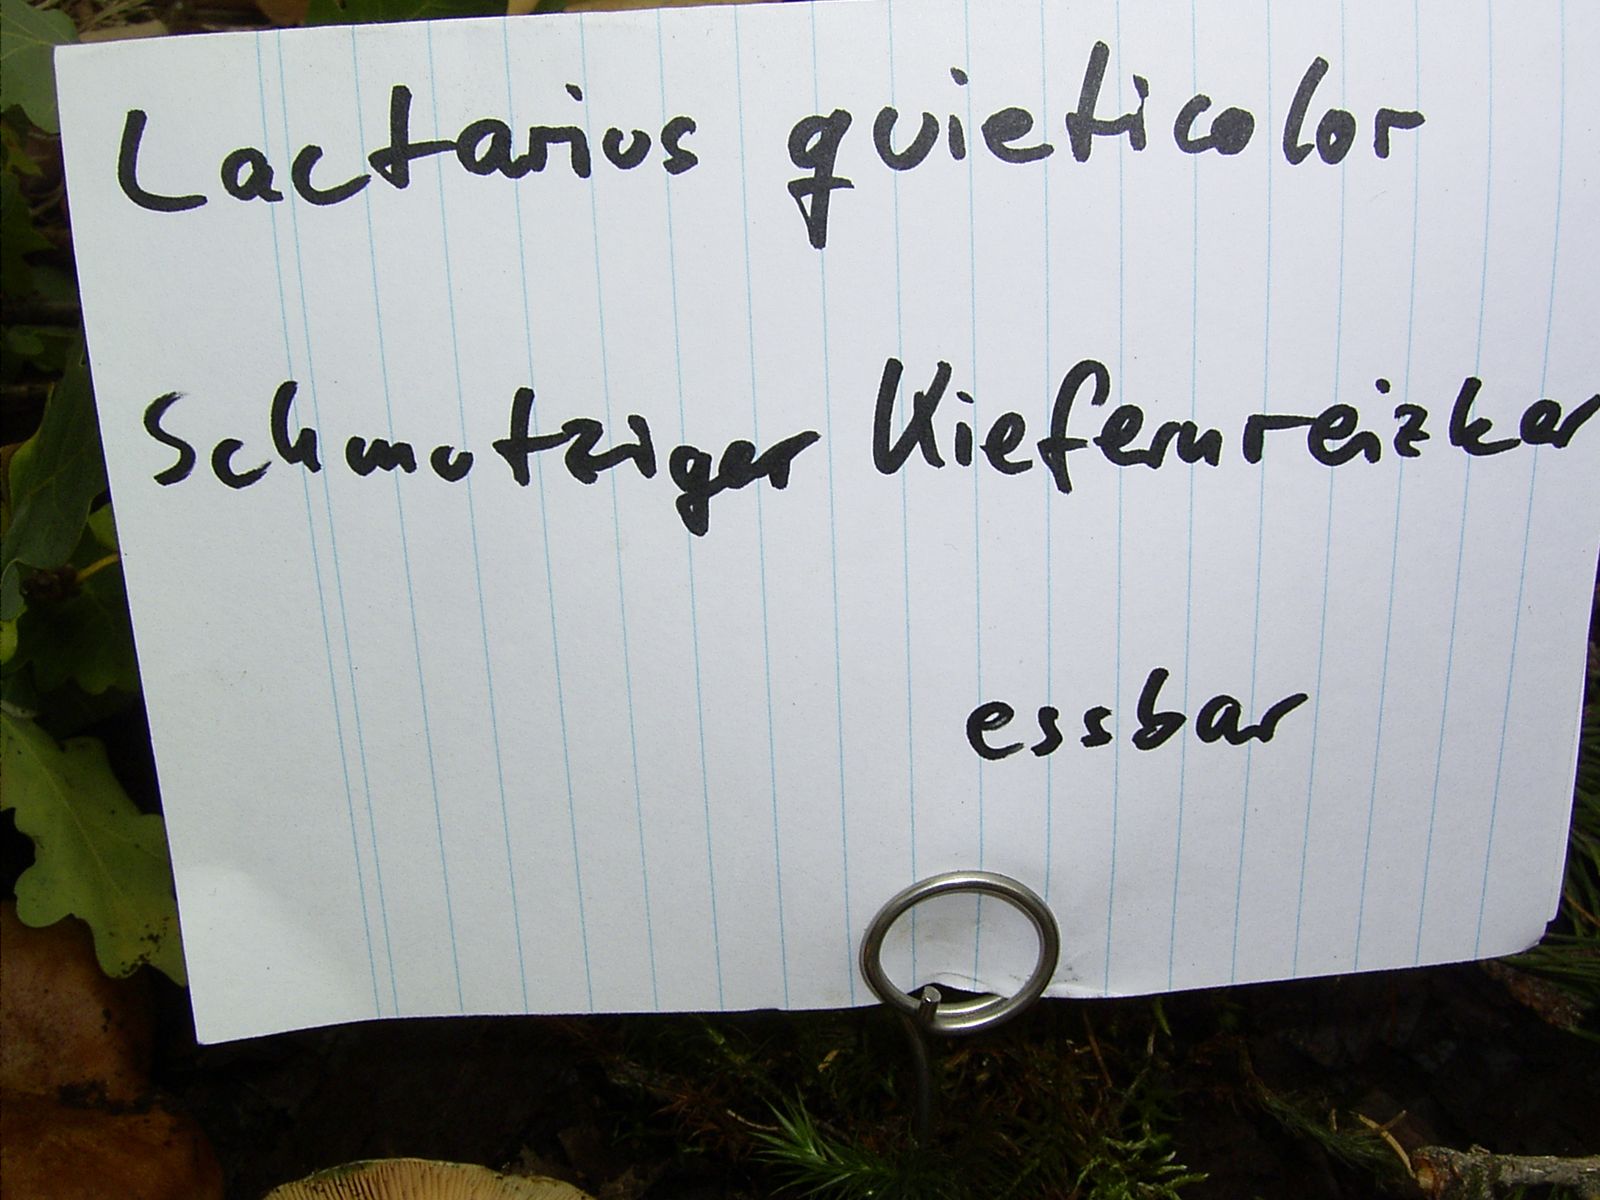 Lactarius quieticolor
Schmutziger Kiefernreizker
essbar